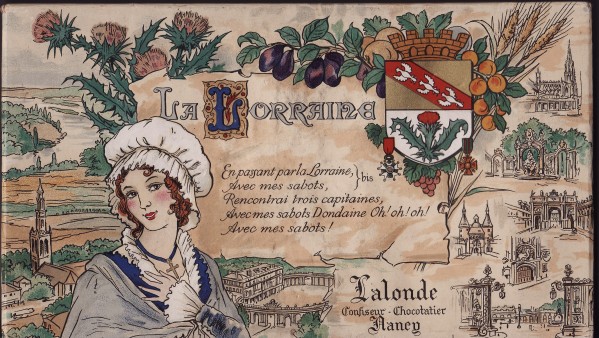 La Lorraine
En passant par la Lorraine,
Avec mes sabots,
Rencontrai trois capitaines,
Avec mes sabots Dondaine Oh! oh! oh!
Avec mes sabots!
bis
Lalonde
Confiseur - Chocolatier
Nancy